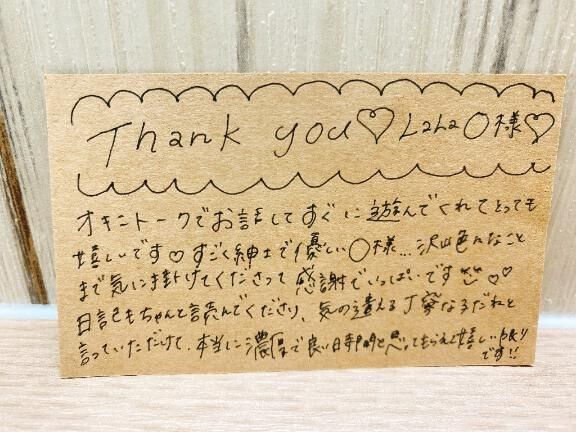 Thank you♡ LaLa○様♡
オキニトークでお話してすぐに遊んでくれてとっても
嬉しいです♡ すごく紳士で優しい○様... 沢山色んなこと
まで気に掛けてくださって 感謝でいっぱいです ♡♡
日記もちゃんと読んでくださり、気の遣える丁寧な
言っていただけて、本当に濃厚で良い時間と思ってもらえて嬉しい
です!!